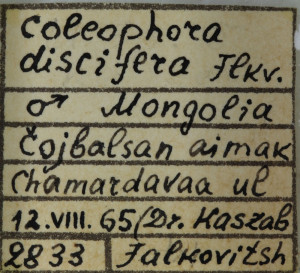 Coleophora
discifera Flkv.
♂ Mongolia
Čojbalsan aimak
Chamardavaa ul
12.VIII.65(Dr. Kaszab
2833 Falkovitsh